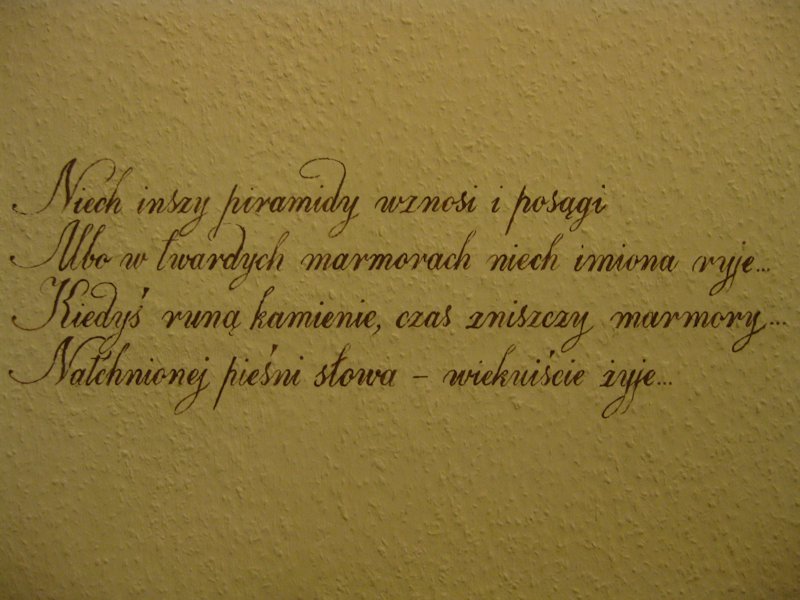 Niech inszy piramidy wznosi i posągi
Albo w twardych marmorach niech imiona ryje...
Kiedyś runą kamienie, czas zniszczy marmory...
Natchnionej pieśni słowa – wiekuiście żyje...